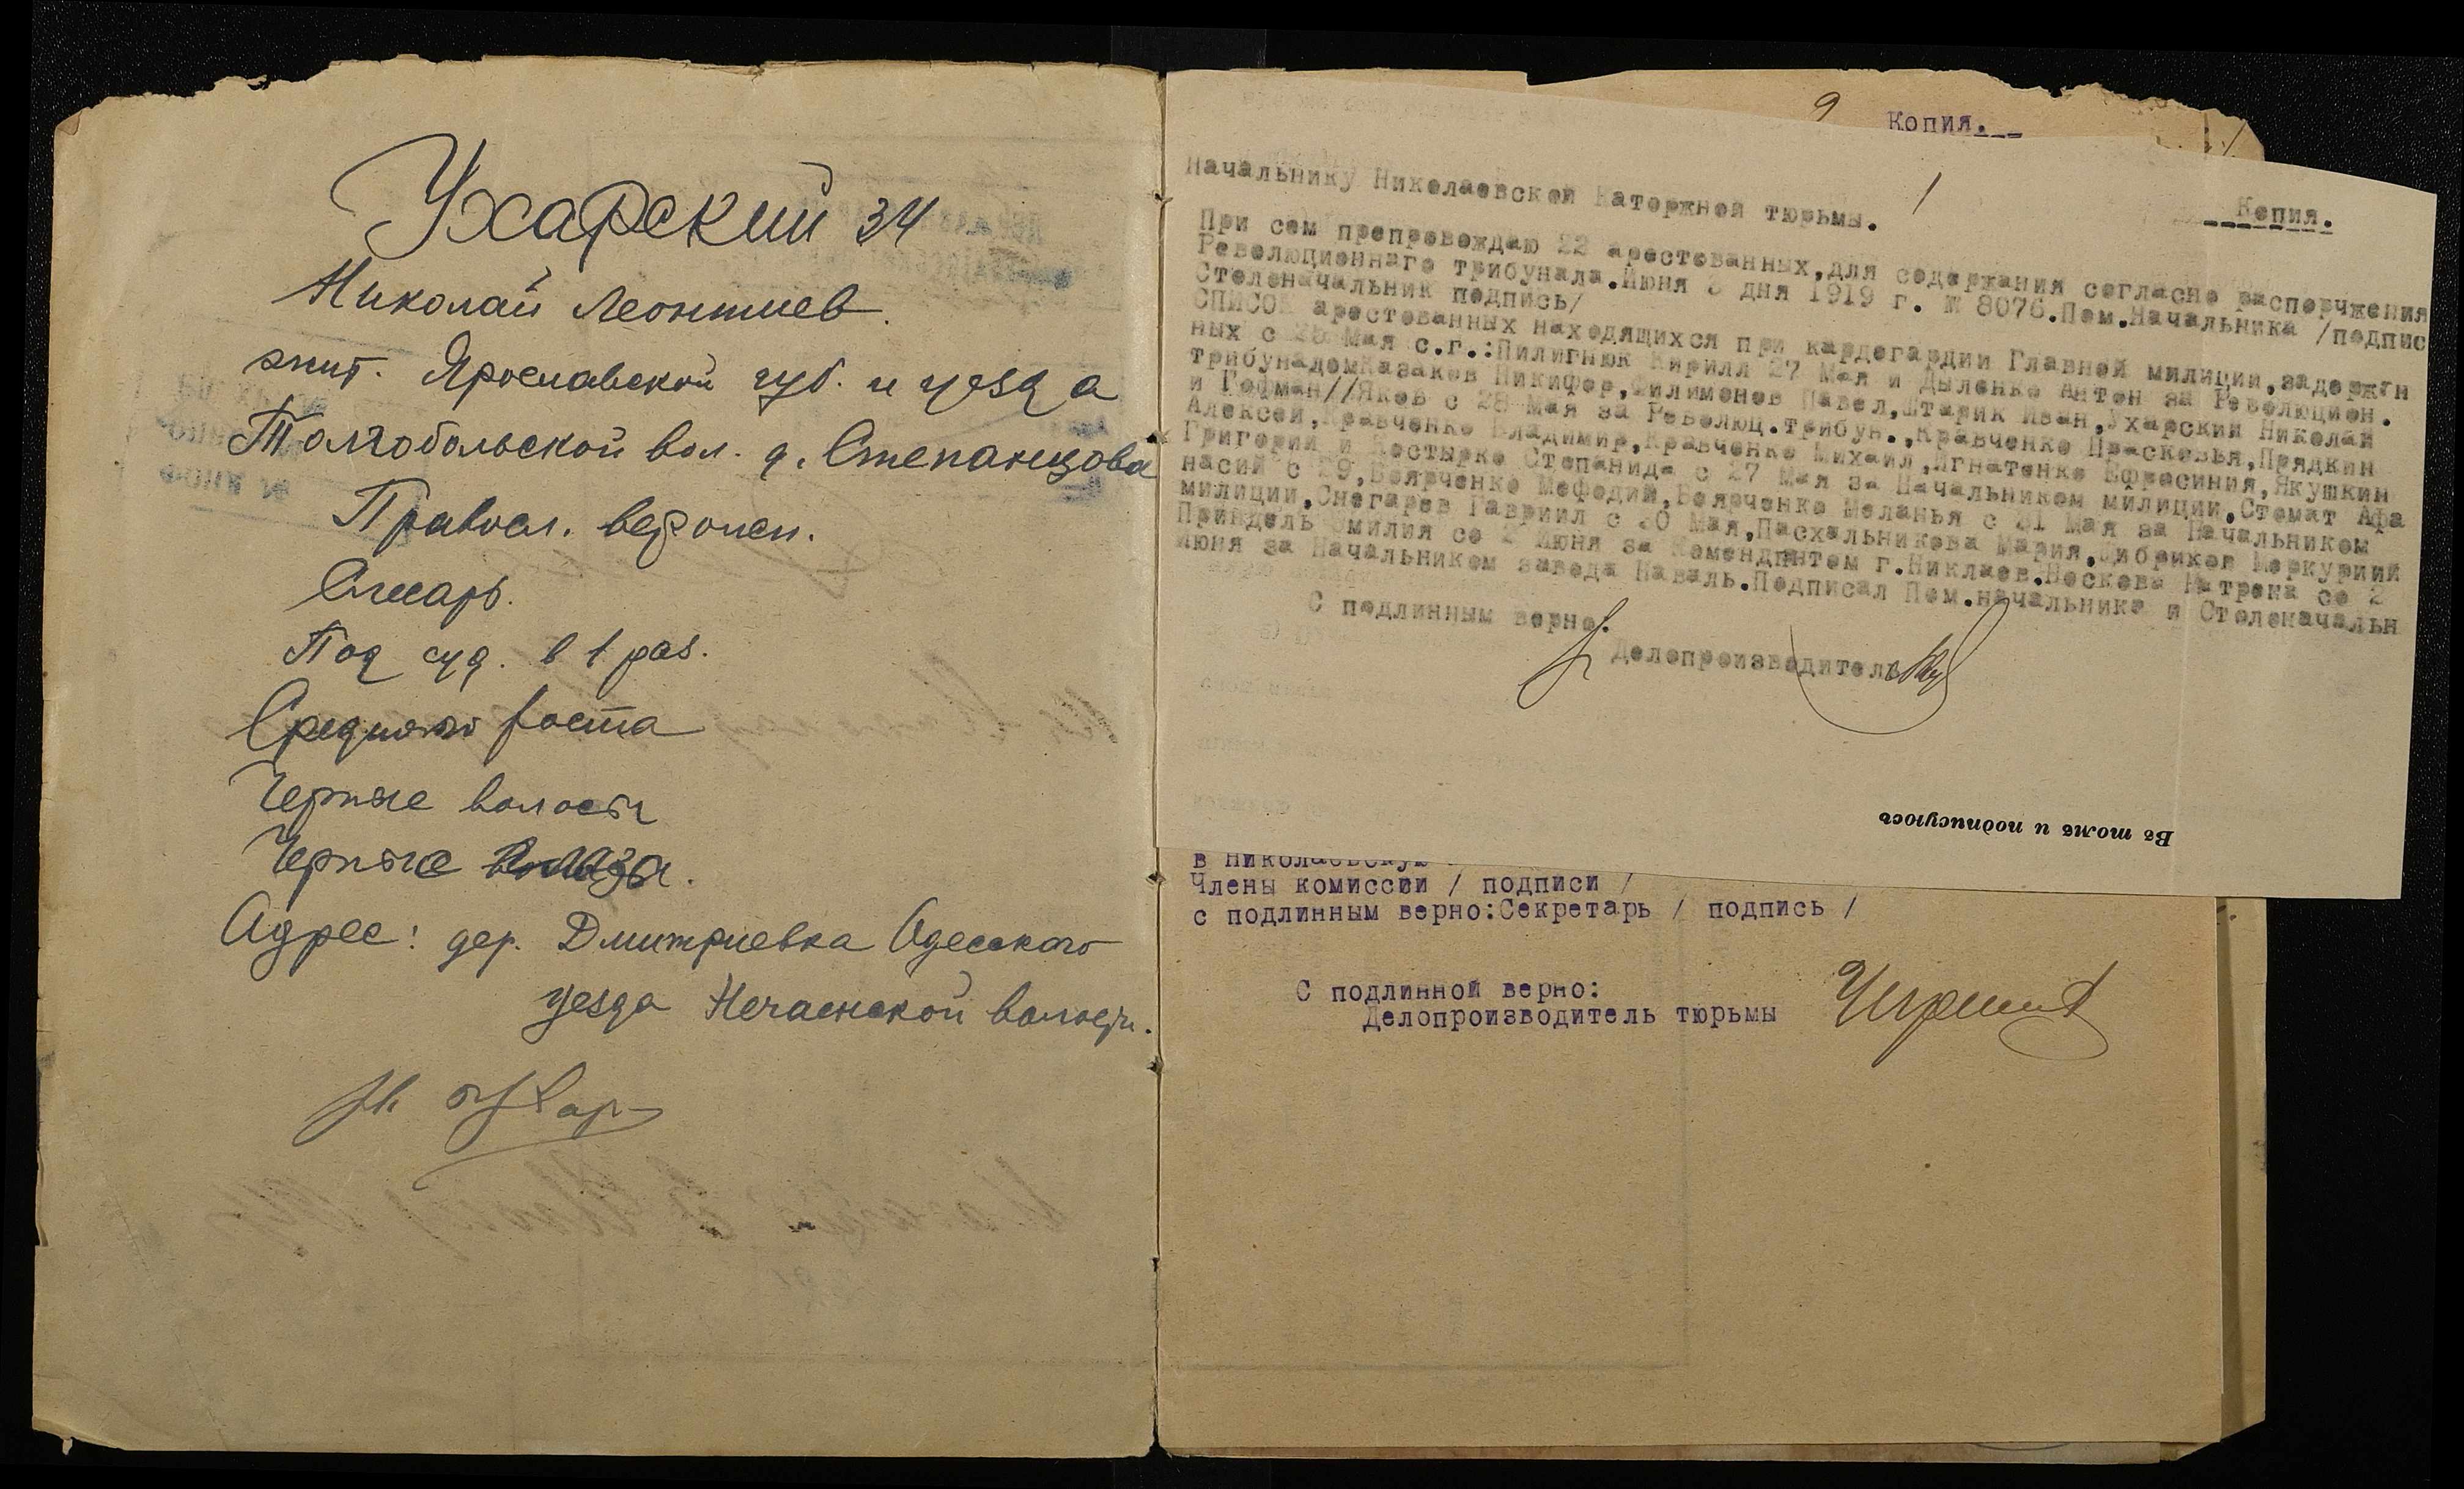 Ухарский 34
Николай Леонтиев.
жит. Ярославской губ. и уезда
Толгобольской вол. д. Степанцова
Правосл. вероисп.
Слесарь.
Под суд. в 1 раз.
Среднего роста
Черные волосы
Черные глаза.
Адрес: дер. Дмитриевка Одесского
уезда Нечаенской волости.
9
Копия.
Начальнику Николаевской Каторжной тюрьмы.
1
Копия.
При сем препровождаю 22 арестованных,для содержания согласно распорчжения
Революционнаго трибунала.Июня 3 дня 1919 г. № 8076.Пом.Начальника /подпис
Столоначальник подпись/
СПИСОК арестованных находящихся при кардегардии Главной милиции,задержан
ных с 25 Мая с.г.:Пилигнюк Кирилл 27 Мая и Дыленко Антон за Революцион.
трибунадомКазаков Никифор,Филимонов Павел,Штарик Иван,Ухарский Николай
и Гофман//Яков с 28 Мая за Революц.трибун.,Кравченко Прасковья,Прядкин
Алексей,Кравченко Владимир,Кравченко Михаил,Игнатенко Ефросиния,Якушкин
Григорий и Костырко Степанида с 27 Мая за Начальником милиции,Стомат Афа
насий с 29,Боярченко Мефодий,Боярченко Меланья с 31 Мая за Начальником
милиции,Снегарев Гавриил с 30 Мая,Пасхальникова Мария,Цибриков Меркурий
Приндель Эмилия со 2 Июня за Комендантом г.Никлаев.Носкова Матрена со 2
Июня за Начальником завода Наваль.Подписал Пом.начальнике и Столоначальн
С подлинным верно:
Делопроизводитель
Въ томъ и подписуюсь
в Николаевскую
Члены комиссии / подписи /
с подлинным верно:Секретарь / подпись /
С подлинной верно:
Делопроизводитель тюрьмы